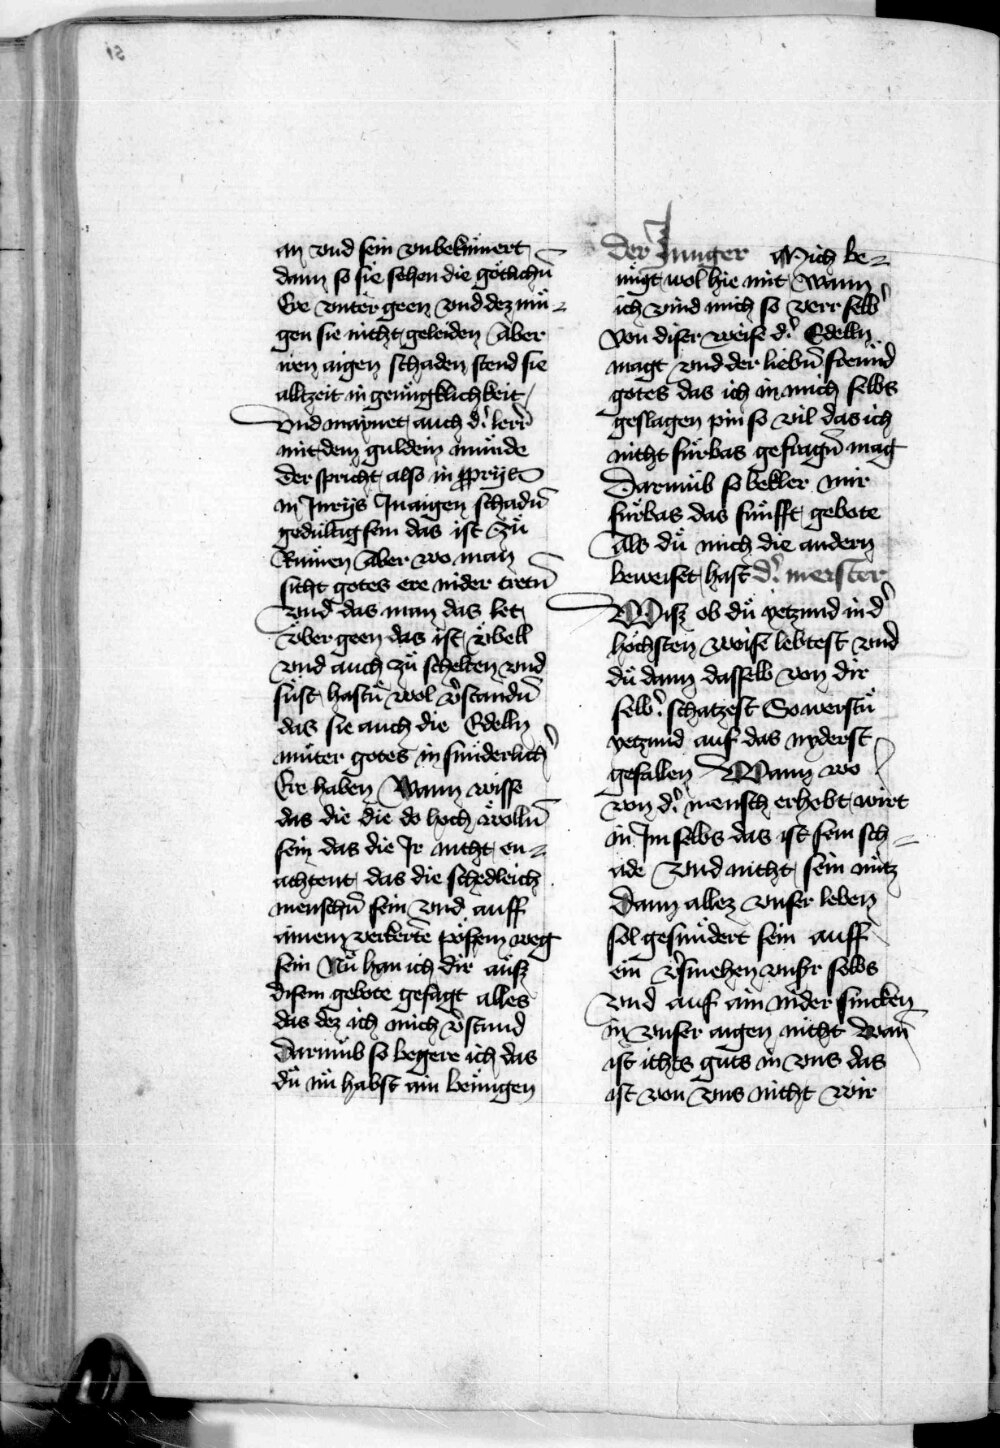 an vnd sein vnbekümert
dann so sie sehen die götlichū
Ere vnter geen vnd dez mü-
gen sie nicht geleiden Aber
iren aigen schaden stend sie
alltzeit in genügklichkeit
Vnd maynet auch d' lerer
mit dem guldein munde
der spricht also in
in Inrijs In aigen schadū
gedultig sein das ist zü
Rümen Aber wo man
sicht gotes ere nider tretū
vnd das man das let
über geen das ist übell
vnd auch zü schelten vnd
süst hastu wol v'standū
das sie auch die Edelln
müter gotes in sünderlich'
Ere haben Wann wisse
das die die do hoch wöllū
sein das die Ir nicht en-
achtent das die schedleich
menschū sein vnd auff
ainem verkerte pösem weg
sein Nü han ich dir auß
disem gebote gesagt alles
das dez ich mich v'stund
Darumb so begere ich das
dü nü habst ain benügen
Der Junger Mich be-
nügt wol hie mit Wann
ich vind mich so verr selb'
Von diser weise d' Edelln
magt vnd der liebū freund
gotes das ich in mich selbs
geslagen pin so vil das ich
nicht fürbas gefragū mag
Darumb so bekler mir
fürbas das fünfft gebote
Als dü mich die andern
beweiset hast d' meister
Wiß ob dü yetzund in d'
höchsten weise lebtest vnd
dü dann dasselb von dir
selb' schatzest So werstu
yetzund auf das nyderst
gefallen Wann wo
von d' mensch erhebt wirt
in Im selbs das ist sein sch-
ade Vnd nicht sein nütz
Dann allez vnser leben
sol gesündert sein auff
ein v'smehen vnsr selbs
vnd auf ain nider sincken
in vnser aigen nicht wan
ist ichts guts in vns das
ist von vns nicht wir